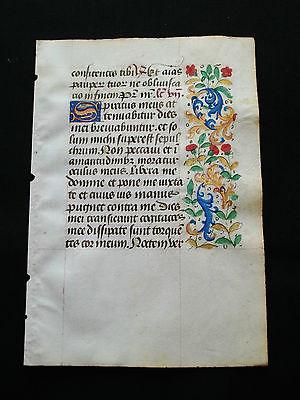 confitentes tibi Et aīas
pauperū tuor ne obliviscā
in finem Pr nr lc vii
Spiritus meus at
tenuabitur dies
mei breviabuntur et so
lum michi superest sepul
chrum Non peccavi et i
amaritudinibz moratur
oculus meus Libera me
domine et pone me iuxta
te et cuius vis manus
pugnet contra me Dies
mei transierunt cogitacio
nes dissipate sunt torquē
tes cor meum Noctem ver